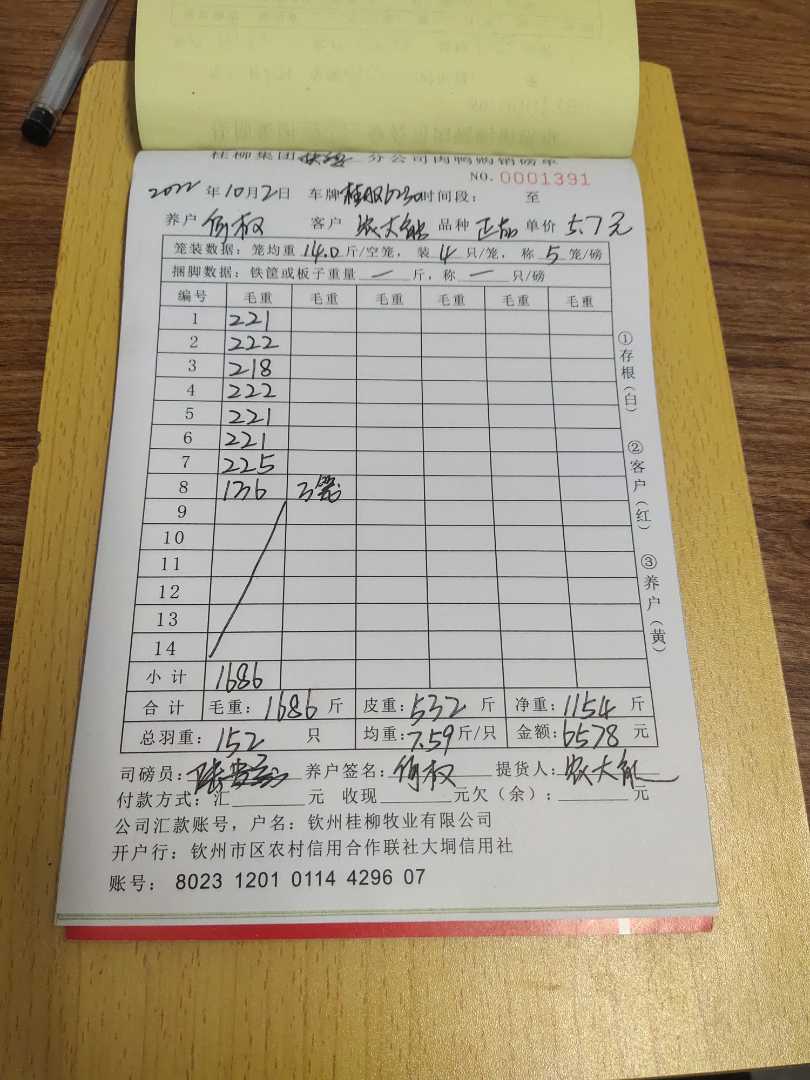 桂柳集团 分公司肉鸭购销磅单
NO. 0001391
2022 年 10 月 2 日 车牌 桂 时间段： 至
养户 何权 客户 农大能 品种 正品 单价 5.7元
笼装数据：笼均重 14.0 斤/空笼，装 4 只/笼，称 5 笼/磅
捆脚数据：铁筐或板子重量 — 斤，称 — 只/磅
编号 毛重 毛重 毛重 毛重 毛重 毛重
1 221
2 222
3 218
4 222
5 221
6 221
7 225
8 136 3笼
9
10
11
12
13
14
小计 1686
合计 毛重：1686 斤 皮重：532 斤 净重：1154 斤
总羽重：152 只 均重：7.59 斤/只 金额：6578 元
司磅员： 养户签名：何权 提货人：农大能
付款方式：汇 元 收现 元欠（余）： 元
公司汇款账号，户名：钦州桂柳牧业有限公司
开户行：钦州市区农村信用合作联社大垌信用社
账号： 8023 1201 0114 4296 07
①存根（白）
②客户（红）
③养户（黄）